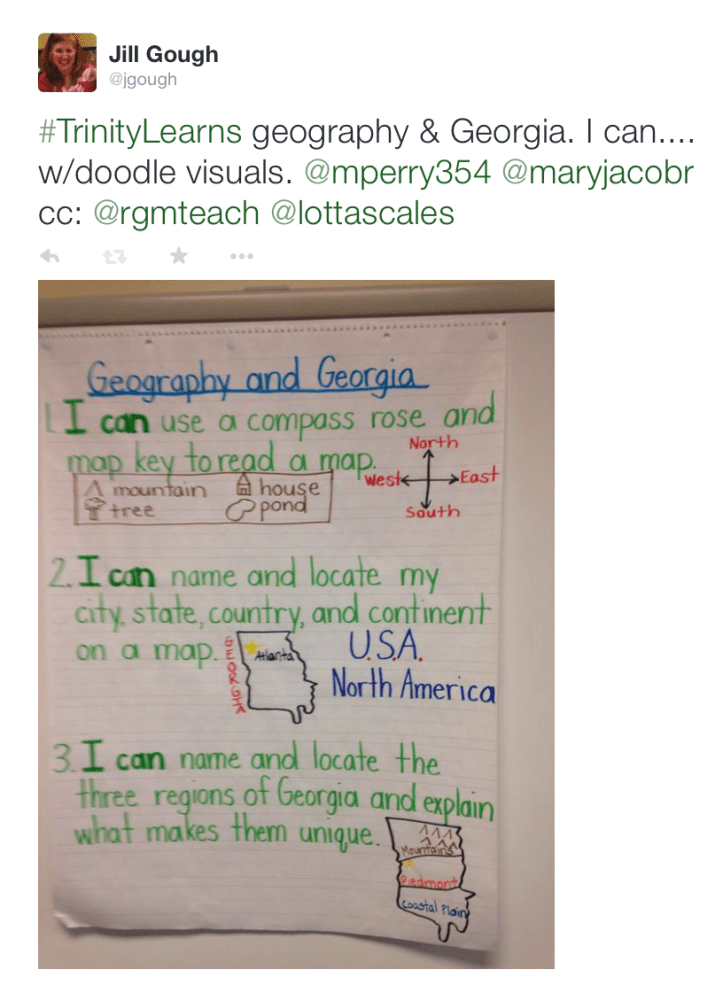 Jill Gough
@jgough
#TrinityLearns geography & Georgia. I can....
w/doodle visuals. @mperry354 @maryjacobr
cc: @rgmteach @lottascales
Geography and Georgia
1. I can use a compass rose and
map key to read a map.
North
West East
South
mountain house
tree pond
2. I can name and locate my
city, state, country, and continent
on a map.
GEORGIA
Atlanta
U.S.A.
North America
3. I can name and locate the
three regions of Georgia and explain
what makes them unique.
Mountains
Piedmont
Coastal Plain